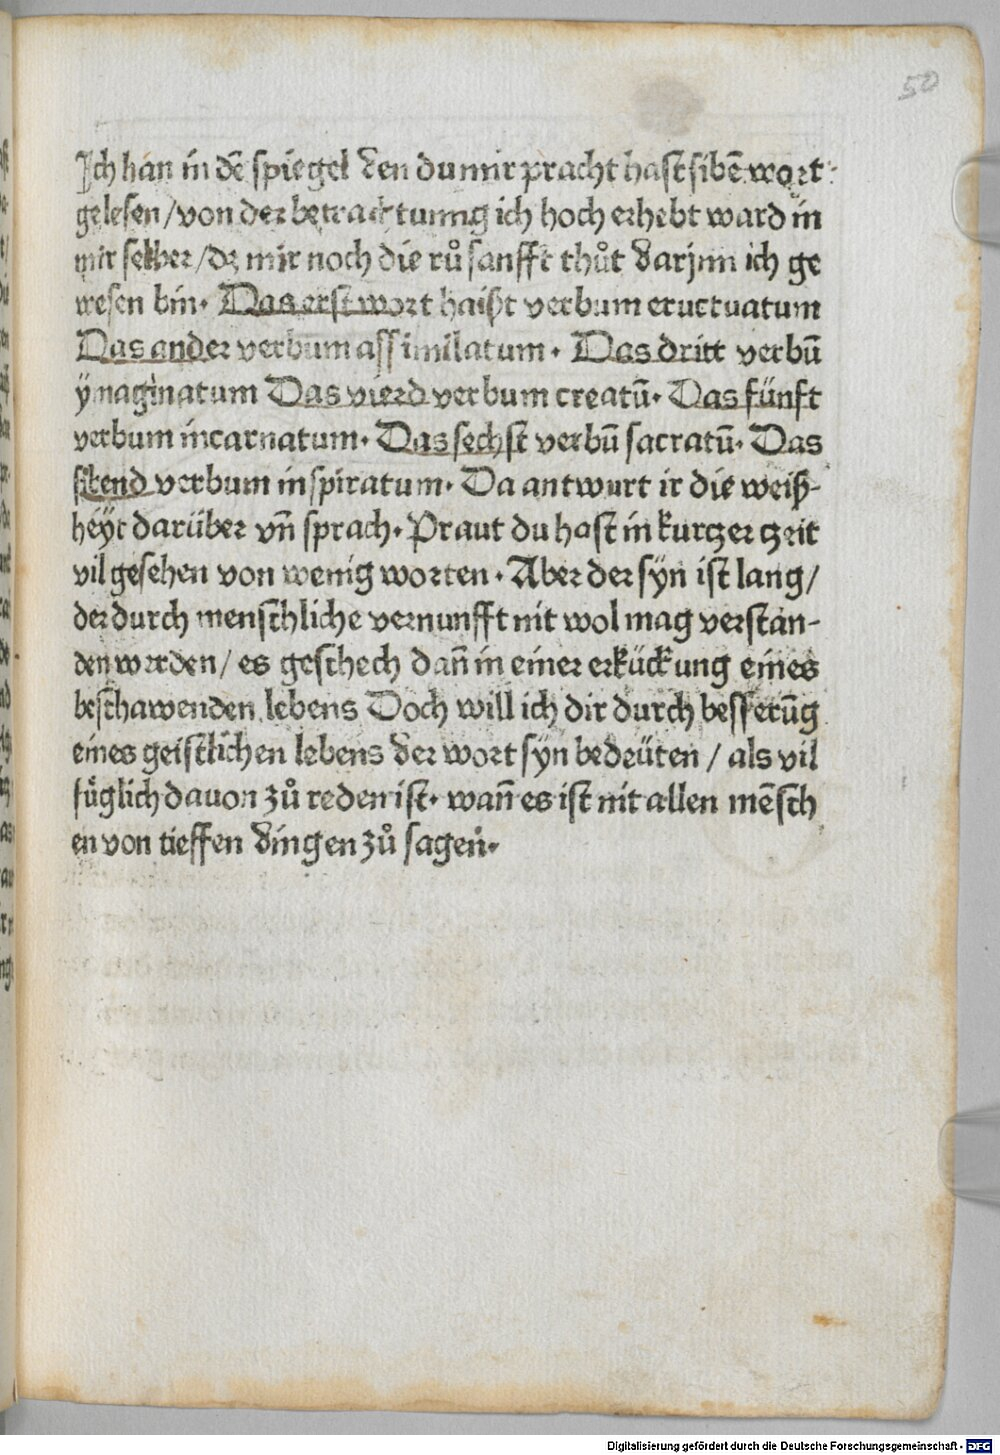 50
Ich han in dē spiegel den du mir pracht hast sibē wort
gelesen / von der betrachtunng ich hoch erhebt ward in
mir selber / dz mir noch die rů sanfft thůt darjnn ich ge
wesen bin. Das erst wort haißt verbum eructuatum
Das ander verbum assimilatum. Das dritt verbū
ymaginatum Das vierd verbum creatū. Das fünft
verbum incarnatum. Das sechst verbū sacratū. Das
sibend verbum inspiratum. Da antwurt ir die weiß-
heyt darüber vn̄ sprach. Praut du hast in kurtzer tzeit
vil gesehen von wenig worten. Aber der syn ist lang /
der durch menschliche vernunfft nit wol mag verstan-
den werden / es geschech dan̄ in einer erkückung eines
beschawenden lebens Doch will ich dir durch besserūg
eines geistlichen lebens der wort syn bedeüten / als vil
füglich dauon zů reden ist. wan̄ es ist nit allen mēsch
en von tieffen dingen zů sagen.
Digitalisierung gefördert durch die Deutsche Forschungsgemeinschaft - DFG